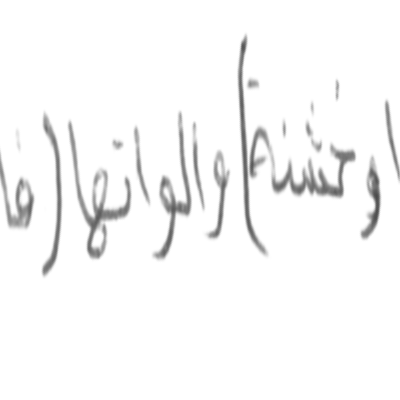 او خشنة) والوانها (فا